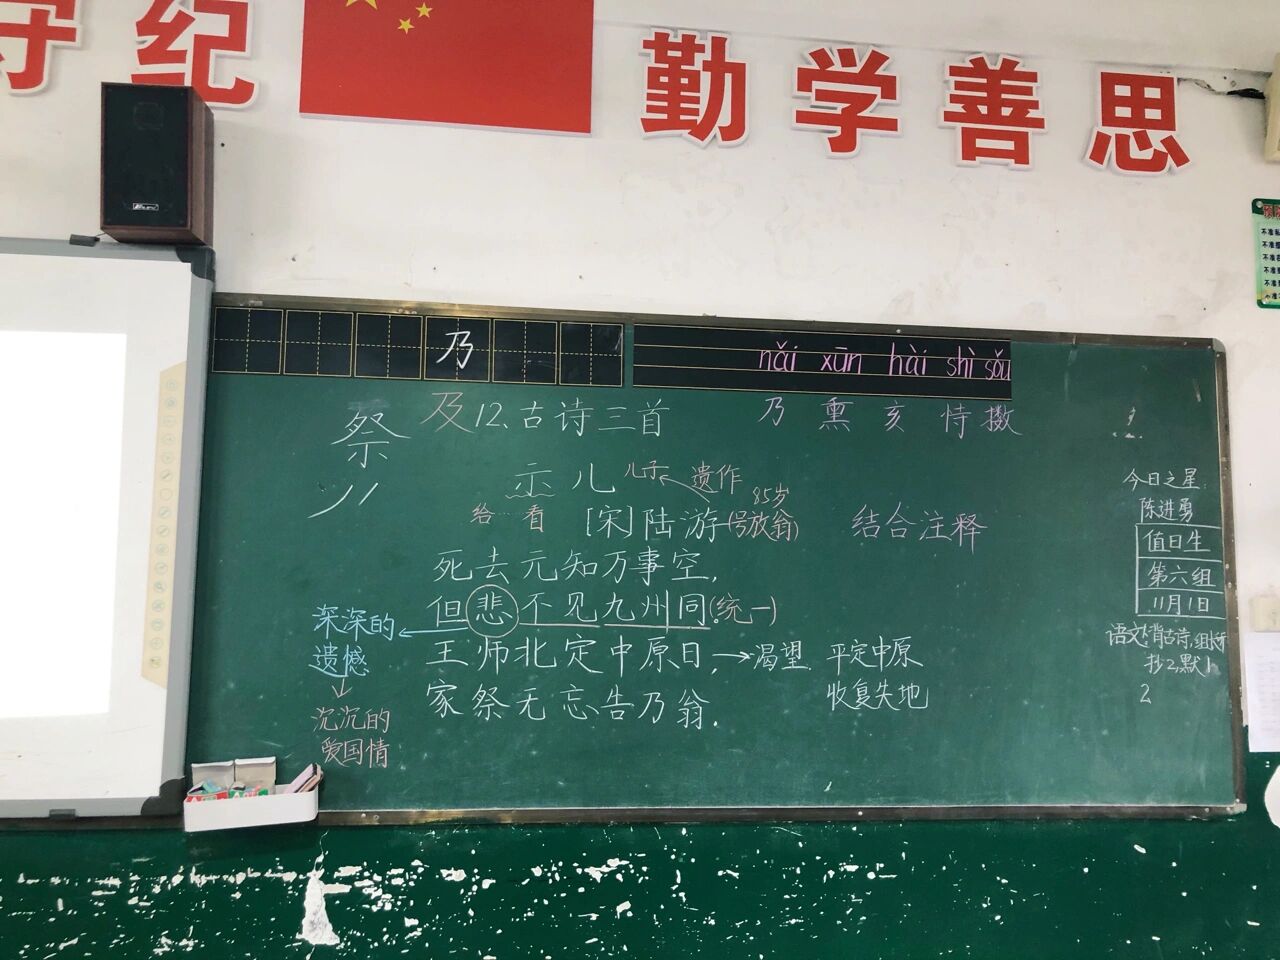 守纪 勤学善思
乃
nǎi xūn hài shì sǒu
及 12、古诗三首
乃 熏 亥 恃 擞
祭
示儿 儿子 遗作
给 看
[宋]陆游(号放翁) 85岁
结合注释
死去元知万事空,
但悲不见九州同。(统一)
王师北定中原日,→渴望 平定中原
收复失地
家祭无忘告乃翁.
深深的
遗憾
沉沉的
爱国情
今日之星:
陈进勇
值日生
第六组
11月1日
语文:背古诗,组长听
抄2,默1
2